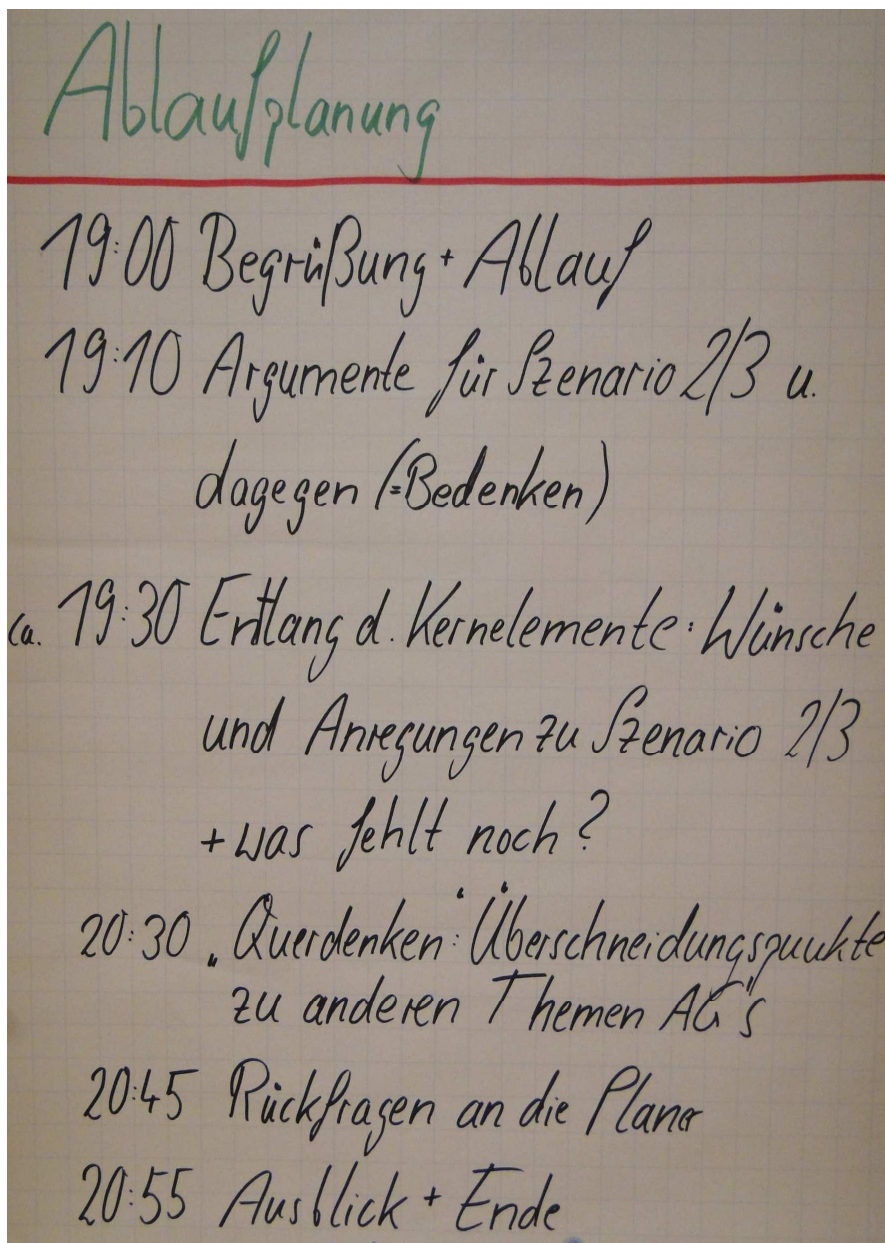 Ablaufplanung
19:00 Begrüßung + Ablauf
19:10 Argumente für Szenario 2/3 u.
dagegen (=Bedenken)
ca. 19:30 Entlang d. Kernelemente: Wünsche
und Anregungen zu Szenario 2/3
+ was fehlt noch?
20:30 „Querdenken“: Überschneidungspunkte
zu anderen Themen AG's
20:45 Rückfragen an die Planer
20:55 Ausblick + Ende